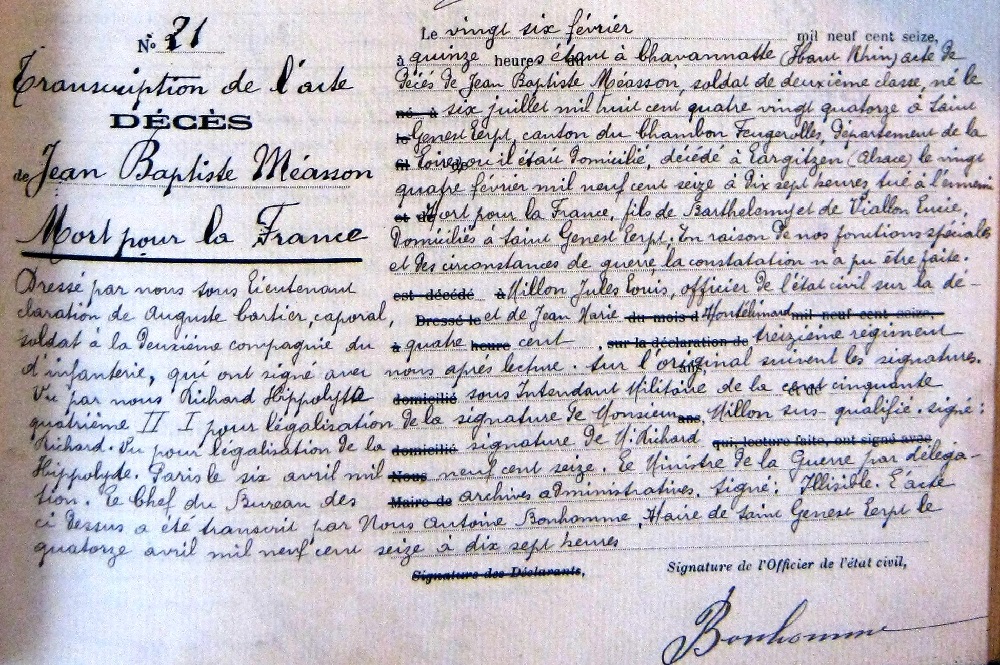 N° 21
Transcription de l'acte
DÉCÈS
de Jean Baptiste Méasson
Mort pour la France
Le vingt six février mil neuf cent seize,
à quinze heures étant à Chavannatte (Haut Rhin) acte de
décès de Jean Baptiste Méasson soldat de deuxième classe, né le
né à six juillet mil huit cent quatre vingt quatorze à Saint
le Genest Lerpt, canton du Chambon Feugerolles, département de la
Loire, ou il était domicilié, décédé à Largitzen (Alsace) le vingt
quatre février mil neuf cent seize à dix sept heures tué à l'ennemi
et de Mort pour la France, fils de Barthelemy et de Viallon Lucie,
domiciliés à Saint Genest Lerpt, En raison de nos fonctions spéciales
et des circonstances de guerre la constatation n'a pu être faite.
Dressé par nous sous Lieutenant est décédé à Millon Jules Louis, officier de l'état civil sur la dé-
claration de Auguste Cartier, caporal, Dressé le et de Jean Marie du mois d Montélimard mil neuf cent seize,
soldat à la deuxième compagnie du à quatre heure cent, sur la déclaration de treizième régiment
d'infanterie, qui ont signé avec nous après lecture. Sur l'original suivent les signatures.
Vu par nous Richard Hippolyte domicilié sous Intendant Militaire de la et de cinquante
quatrième II I pour légalisation de la signature de Monsieur ans, Millon sus-qualifié. signé:
Richard. Vu pour légalisation de la domicilié signature de M. Richard qui, lecture faite, ont signé avec
Hippolyte. Paris le six avril mil Nous neuf cent seize. Le Ministre de la Guerre par déléga-
tion. Le Chef du Bureau des Maire de archives administratives. Signé: Illisible. L'acte
ci dessus a été transcrit par Nous Antoine Bonhomme, Maire de Saint Genest Lerpt le
quatorze avril mil neuf cent seize à dix sept heures
Signature des Déclarants,
Signature de l'Officier de l'état civil,
Bonhomme